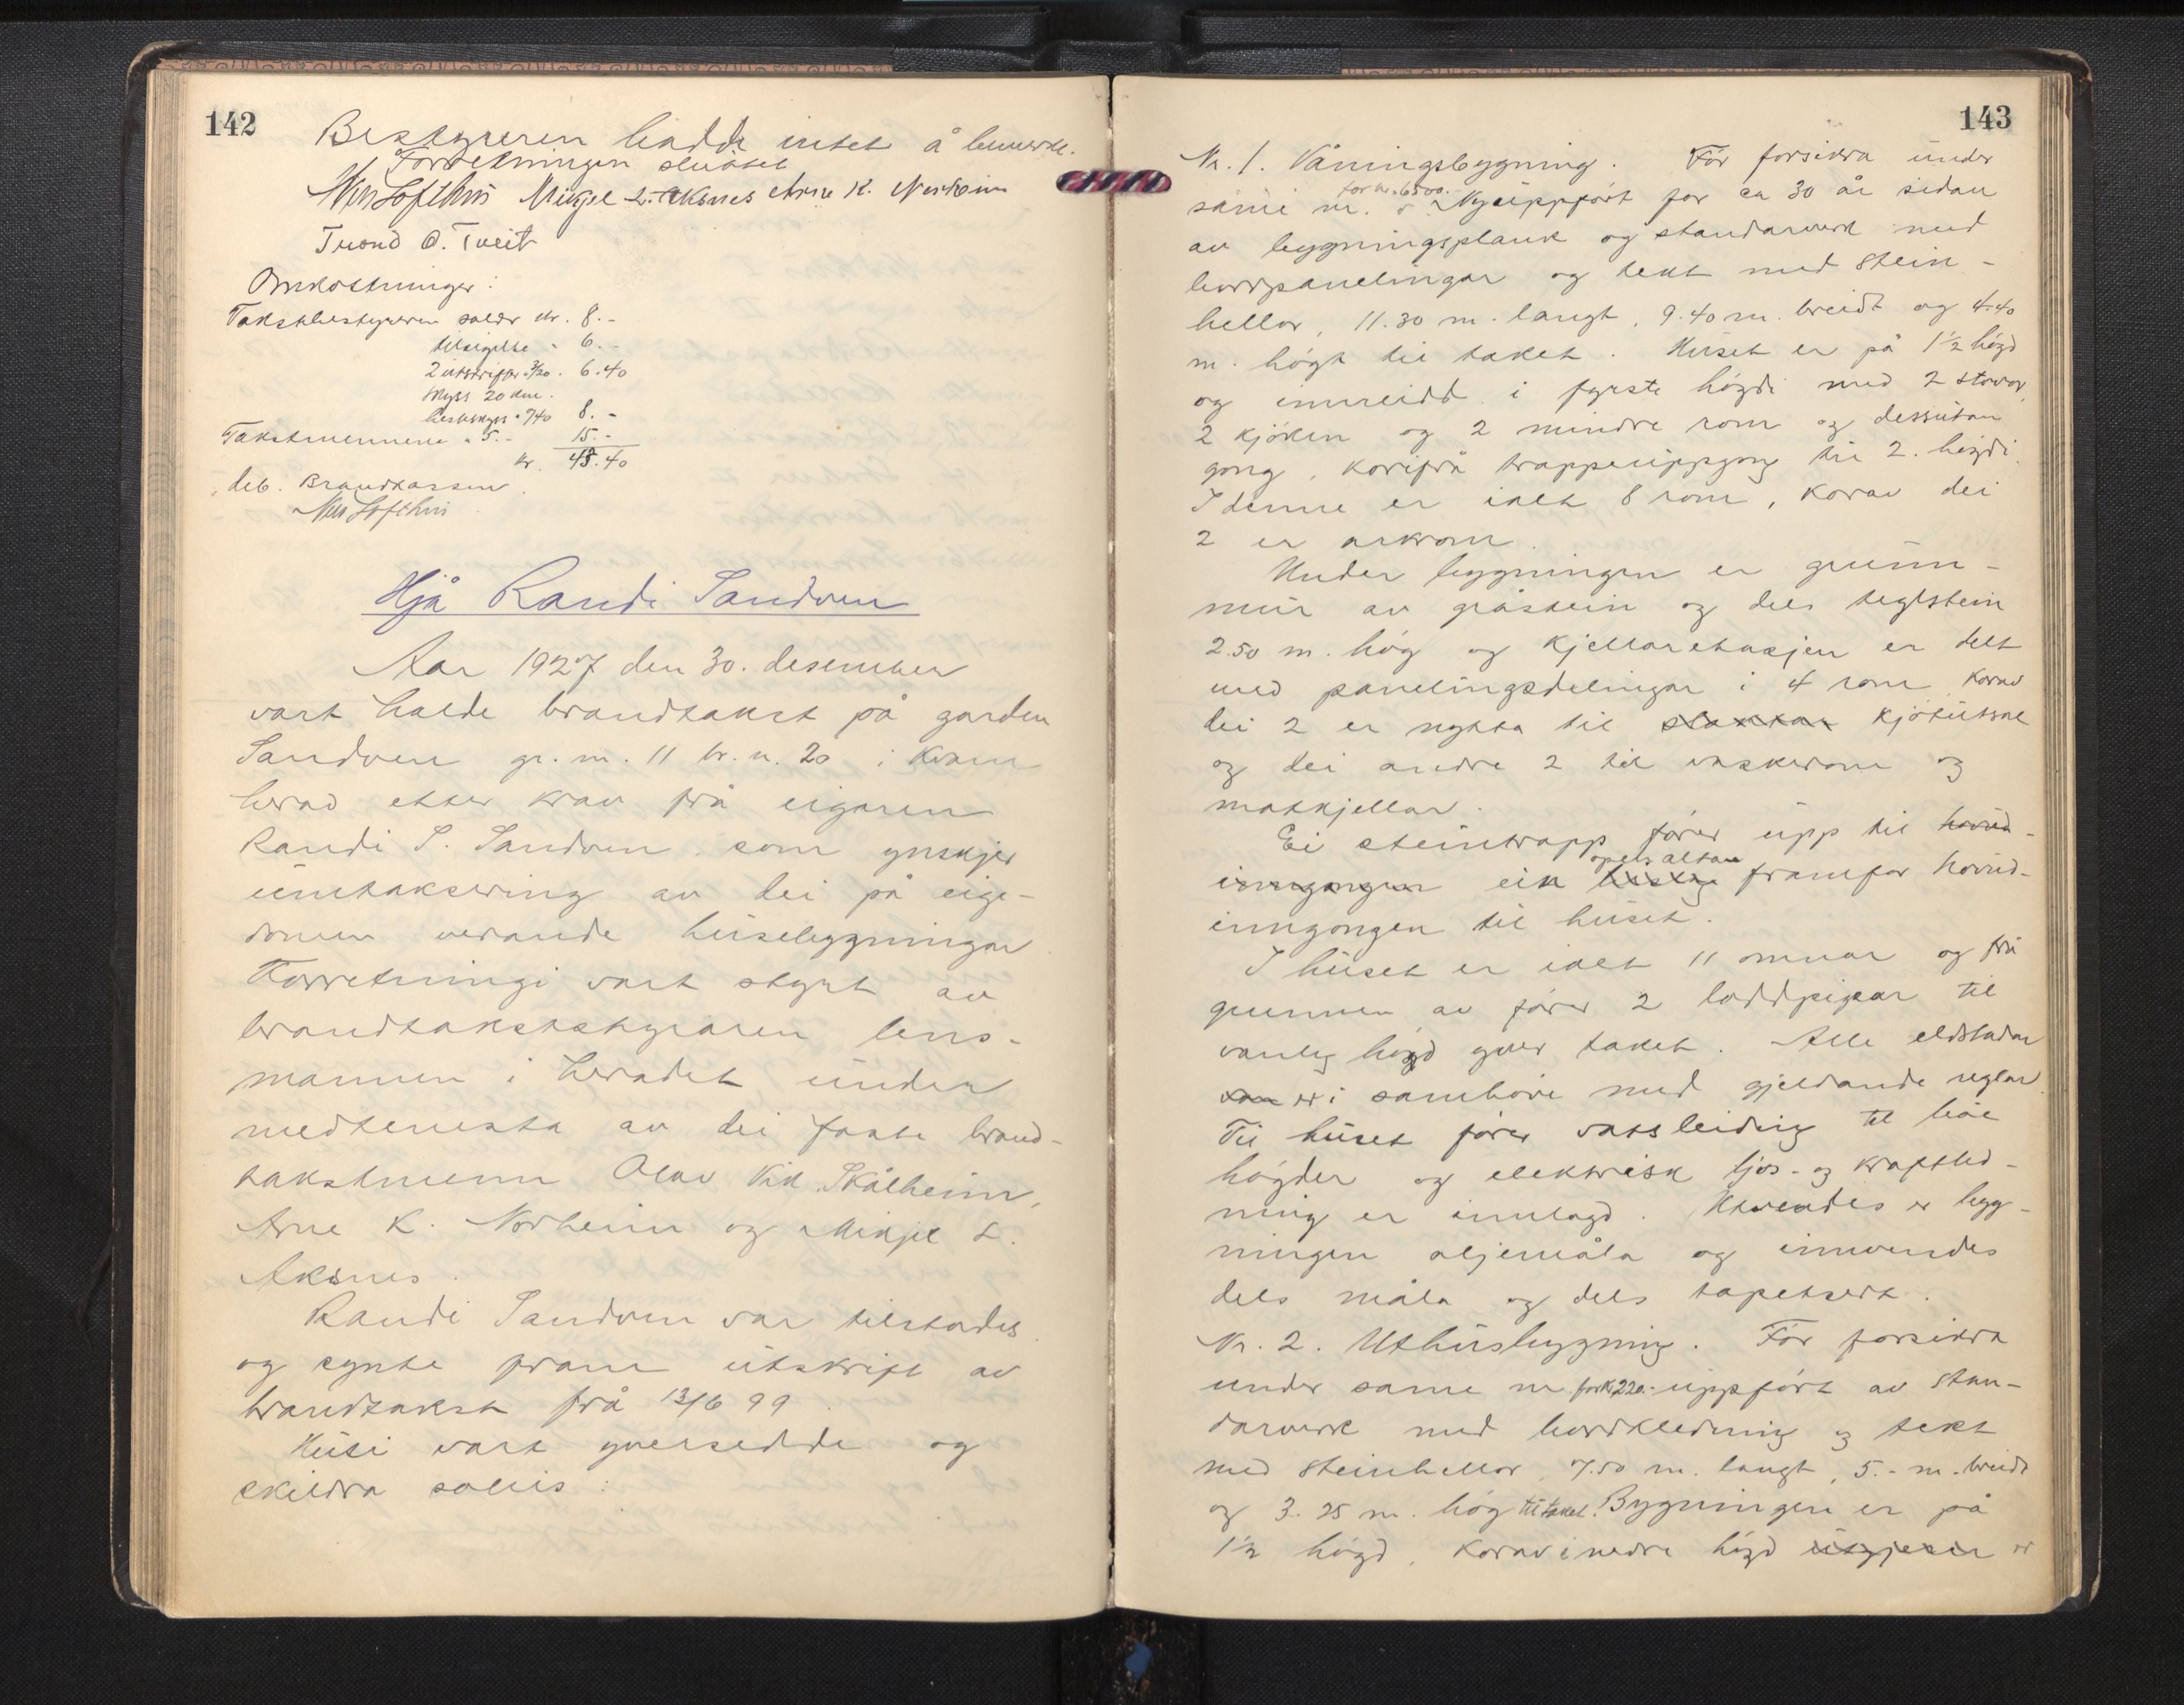 142
Bestyreren hadde intet å bemerke.
Forretningen sluttet
Nils Lofthus Mikjel L. Aksnes Arne K. Norheim
Trond O. Tveit
Omkostninger:
Takstbestyreren salær kr. 8.-
tilsigelse " 6.-
2 utskrifter " 3/20 . 6.40
skyss 20 km.
hestskyss " 7/40 8.-
Takstmennene " 5.- 15.-
kr. 43.40
deb. Brandkassen.
Nils Lofthus
Hjå Randi Sandven
Aar 1927 den 30. desember
vart halde brandtakst på garden
Sandven gr. nr. 11 br. n. 20 i Kvam
herad etter krav frå eigaren
Randi S. Sandven som ynskjer
umtaksering av dei på eige-
domen verande husebygningar.
Forretningi vart styrt av
brandtakststyraren lens-
mannen i heradet under
medtenesta av dei faste brand-
takstmenn Olav Vik Skålheim,
Arne K. Norheim og Mikjel L.
Aksnes.
Randi Sandven var tilstades
og synte fram utskrift av
brandtakst frå 13/6 99.
Husi vart yversedde og
skildra soleis:
143
Nr. 1. Våningsbygning. För forsikra under
same nr. for kr. 6500.- Nyuppfört for ca 30 år sidan
av bygningsplank og standarverk med
bordpanelingar og tekt med stein-
hellor, 11.30 m. langt, 9.40 m. breidt og 4.40
m. högt til taket. Huset er på 1½ högd
og innreidd i fyrste högdi med 2 stovor,
2 kjöken og 2 mindre rom og dessutan
gong, korifrå trappeuppgong til 2. högdi.
I denne er ialt 8 rom, korav dei
2 er arkrom.
Under bygningen er grunn-
mur av gråstein og dels teglstein
2.50 m. hög og kjellaretasjen er delt
med panelingsdelingar i 4 rom korav
dei 2 er nytta til slaktar kjötutsal
og dei andre 2 til vaskerom og
matkjellar.
Ei steintrapp förer upp til hovud-
inngongen ein open altan framfor hovud-
inngongen til huset.
I huset er ialt 11 omnar og frå
grunnen av förer 2 loddpipar til
vanleg högd yver taket. Alle eldstadar
var er i samhöve med gjeldande reglar.
Til huset förer vatsleiding til båe
högder og elektrisk ljos- og kraftled-
ning er innlagd. Utvendes er bygg-
ningen oljemåla og innvendes
dels måla og dels tapetsert.
Nr. 2. Uthusbygning. För forsikra
under same nr. for kr. 220.- uppfört av stan-
darverk med bordkledning og tekt
med steinhellor, 7.50 m. langt, 5.- m. breidt
og 3.25 m. hög til taket. Bygningen er på
1½ högd, korav i nedre högd utgjerer er